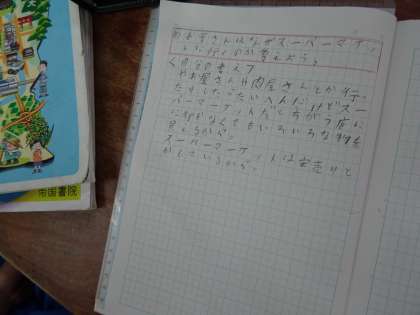 お客さんはなぜスーパーマーケ
に行くのか考えよう。
自分の考え
やお屋さんや肉屋さんとか行
たりしたらたいへんだけどスー
パーマーケットだとちがう店に
行かなくてもいろいろな物を
買えるから。
スーパーマーケットは安売りと
かしているから。
帝国書院